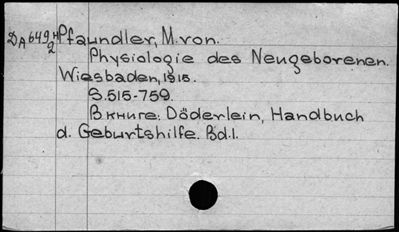 DA649 4/2 Pfaundler, M. von.
Physiologie des Neugeborenen.
Wiesbaden, 1915.
S. 515-759.
В книге: Döderlein, Handbuch
d. Geburtshilfe. Bd. 1.